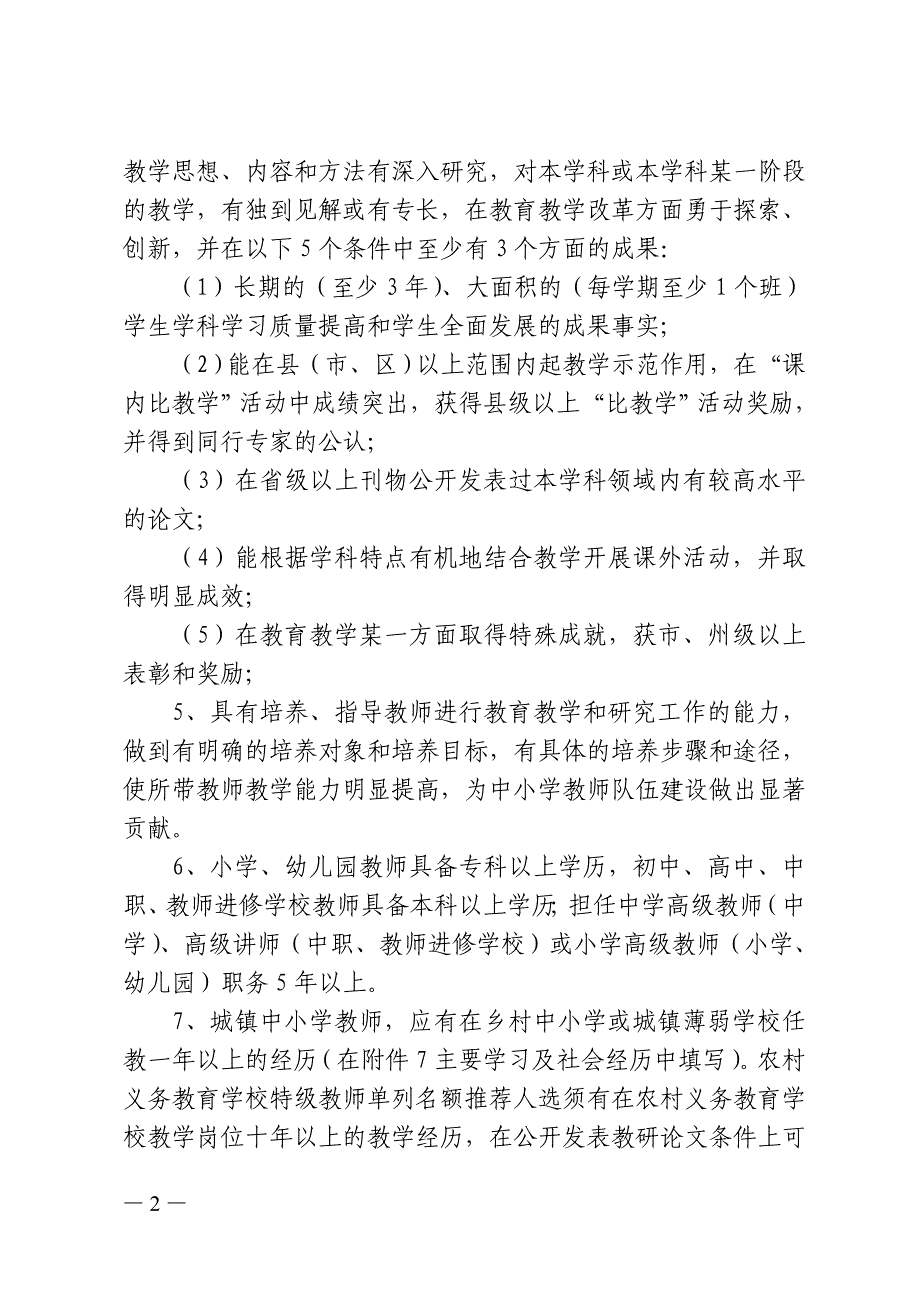 教学思想、内容和方法有深入研究，对本学科或本学科某一阶段
的教学，有独到见解或有专长，在教育教学改革方面勇于探索、
创新，并在以下 5 个条件中至少有 3 个方面的成果：
（1）长期的（至少 3 年）、大面积的（每学期至少 1 个班）
学生学科学习质量提高和学生全面发展的成果事实；
（2）能在县（市、区）以上范围内起教学示范作用，在“课
内比教学”活动中成绩突出，获得县级以上“比教学”活动奖励，
并得到同行专家的公认；
（3）在省级以上刊物公开发表过本学科领域内有较高水平
的论文；
（4）能根据学科特点有机地结合教学开展课外活动，并取
得明显成效；
（5）在教育教学某一方面取得特殊成就，获市、州级以上
表彰和奖励；
5、具有培养、指导教师进行教育教学和研究工作的能力，
做到有明确的培养对象和培养目标，有具体的培养步骤和途径，
使所带教师教学能力明显提高，为中小学教师队伍建设做出显著
贡献。
6、小学、幼儿园教师具备专科以上学历，初中、高中、中
职、教师进修学校教师具备本科以上学历；担任中学高级教师（中
学）、高级讲师（中职、教师进修学校）或小学高级教师（小学、
幼儿园）职务 5 年以上。
7、城镇中小学教师，应有在乡村中小学或城镇薄弱学校任
教一年以上的经历（在附件 7 主要学习及社会经历中填写）。农村
义务教育学校特级教师单列名额推荐人选须有在农村义务教育学
校教学岗位十年以上的教学经历，在公开发表教研论文条件上可
— 2 —